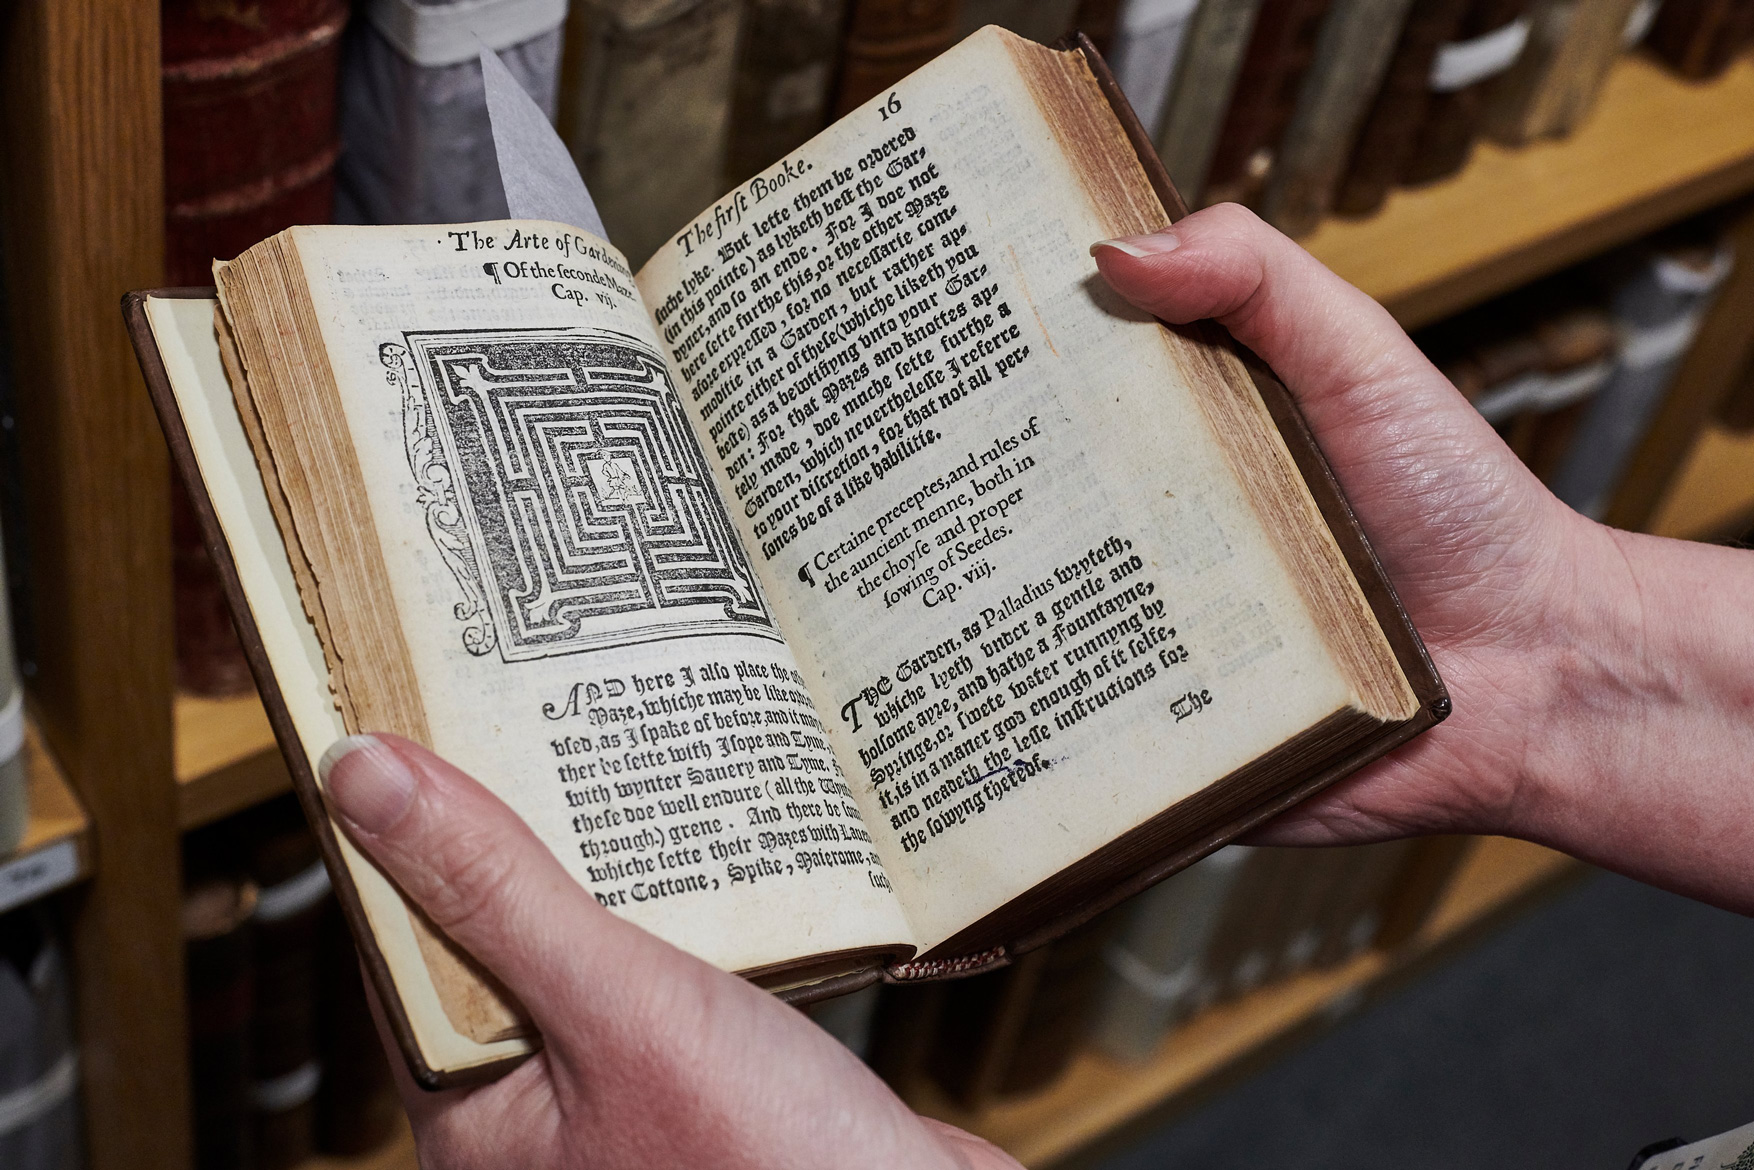 The Arte of Gardening
¶ Of the seconde Maze.
Cap. vij.
AND here I also place the
Maze, whiche may be like
vsed, as I spake of before, and it may
ther be sette with Isope and Tyme,
with wynter Sauery and Tyme.
these doe well endure (all the
through) grene. And there be
whiche sette their Mazes with
der Cottone, Spike, Maierome,
suche
The first Booke.
16
suche lyke. But lette them be ordered
(in this pointe) as lyketh best the Gar-
dyner, and so an ende. For I doe not
here sette furthe this, or the other Maze
afore expressed, for no necessarie com-
moditie in a Garden, but rather ap-
pointe either of these (whiche liketh you
beste) as a bewtifiyng vnto your Gar-
den: For that Mazes and knottes ap-
tely made, doe muche sette furthe a
Garden, which neuerthelesse I referre
to your discretion, for that not all per-
sones be of a like habilitie.
¶ Certaine preceptes, and rules of
the auncient menne, both in
the choyse and proper
sowing of Seedes.
Cap. viij.
THE Garden, as Palladius wryteth,
whiche lyeth vnder a gentle and
holsome ayre, and hathe a Fountayne,
Springe, or swete water runnyng by
it, is in a maner god enough of it selfe,
and neadeth the lesse instructions for
the sowyng thereof.
The